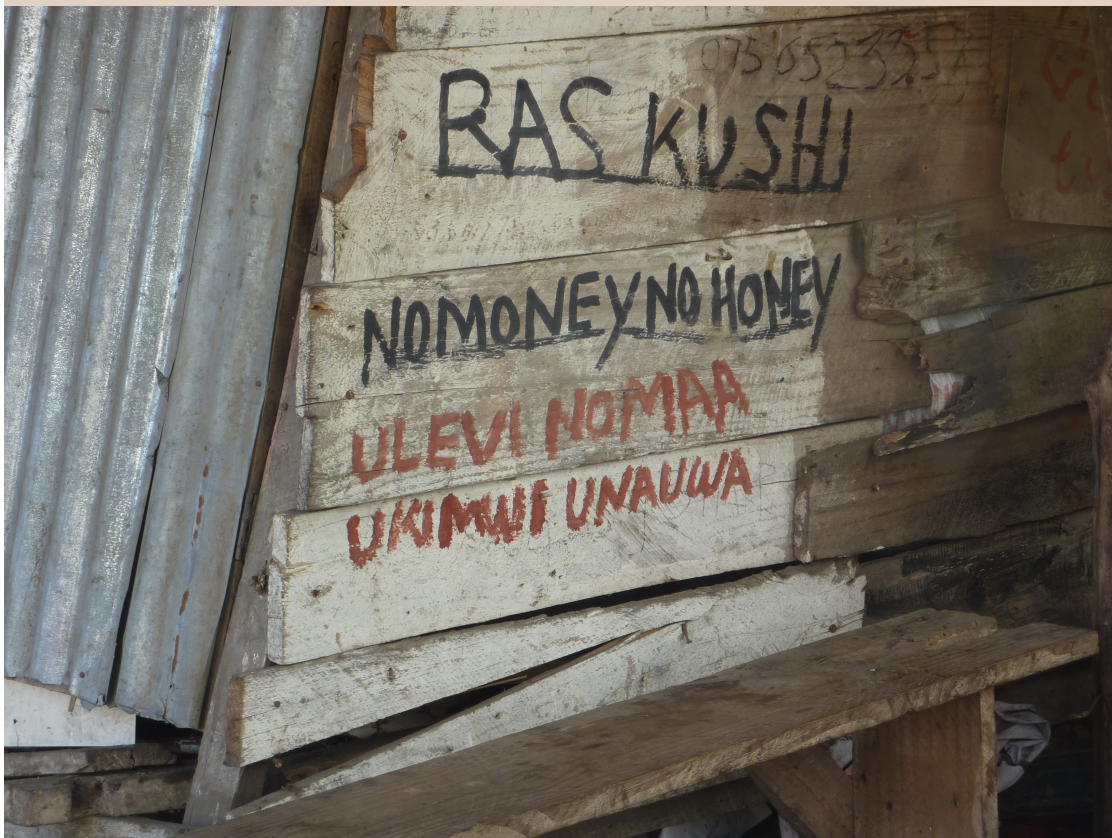 RAS KUSHI
NO MONEY NO HONEY
ULEVI NOMAA
UKIMWI UNAUWA